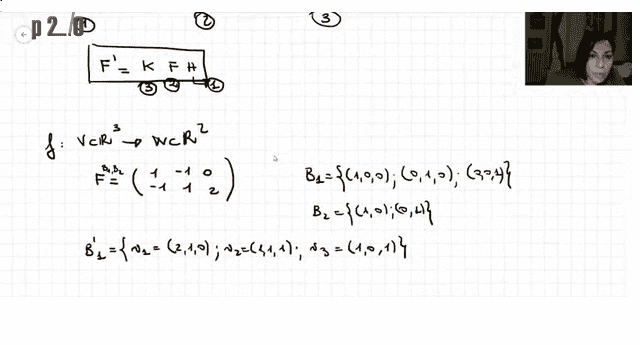 p 2_/9 ① ② ③
F' = K F H
③ ② ①
f: V⊂R³ → W⊂R²
F^{B₁,B₂} = (1 -1 0
-1 1 2)
B₁ = {(1,0,0); (0,1,0); (0,0,1)}
B₂ = {(1,0); (0,1)}
B'₁ = {v₁ = (2,1,0); v₂ = (1,1,1); v₃ = (1,0,1)}